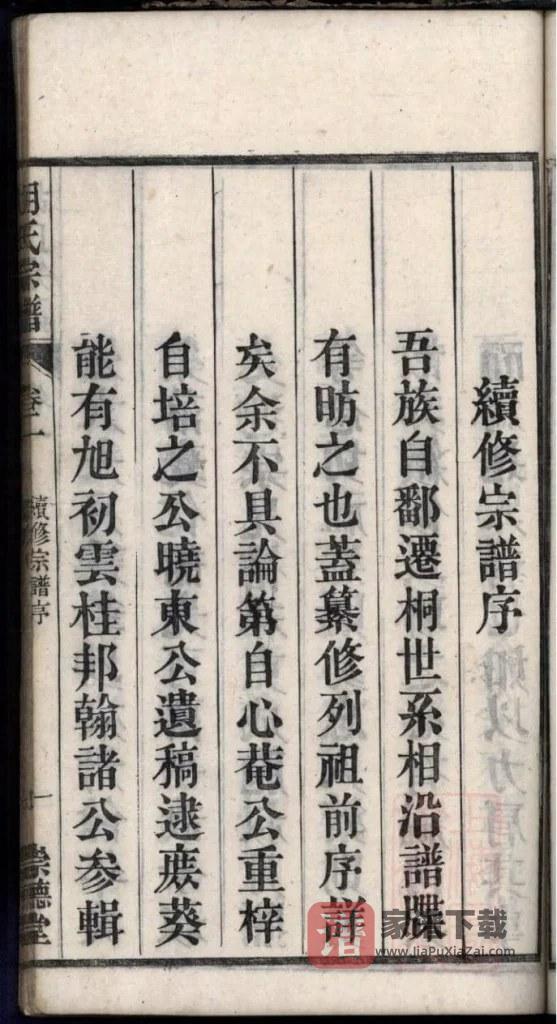 續修宗譜序
吾族自鄱遷桐世系相沿譜牒
有昉之也蓋纂修列祖前序詳
矣余不具論第自心菴公重梓
自培之公曉東公遺稿逮蔟葵
能有旭初雲桂邦翰諸公參輯
氏宗譜
卷一
續修宗譜序
崇德堂
家譜下载
www.JiaPuXiaZai.com